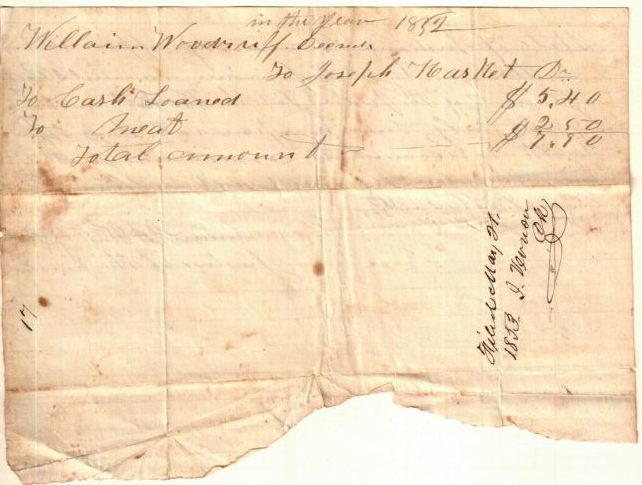 in the year 1852
Willaim Woodruff
To Joseph Harknet Dr.
To Cash Loaned $ 5.40
To meat $ 2.50
Total ammount $ 7.90
Filed May 31.
1853 J. Vernon
Clk
17